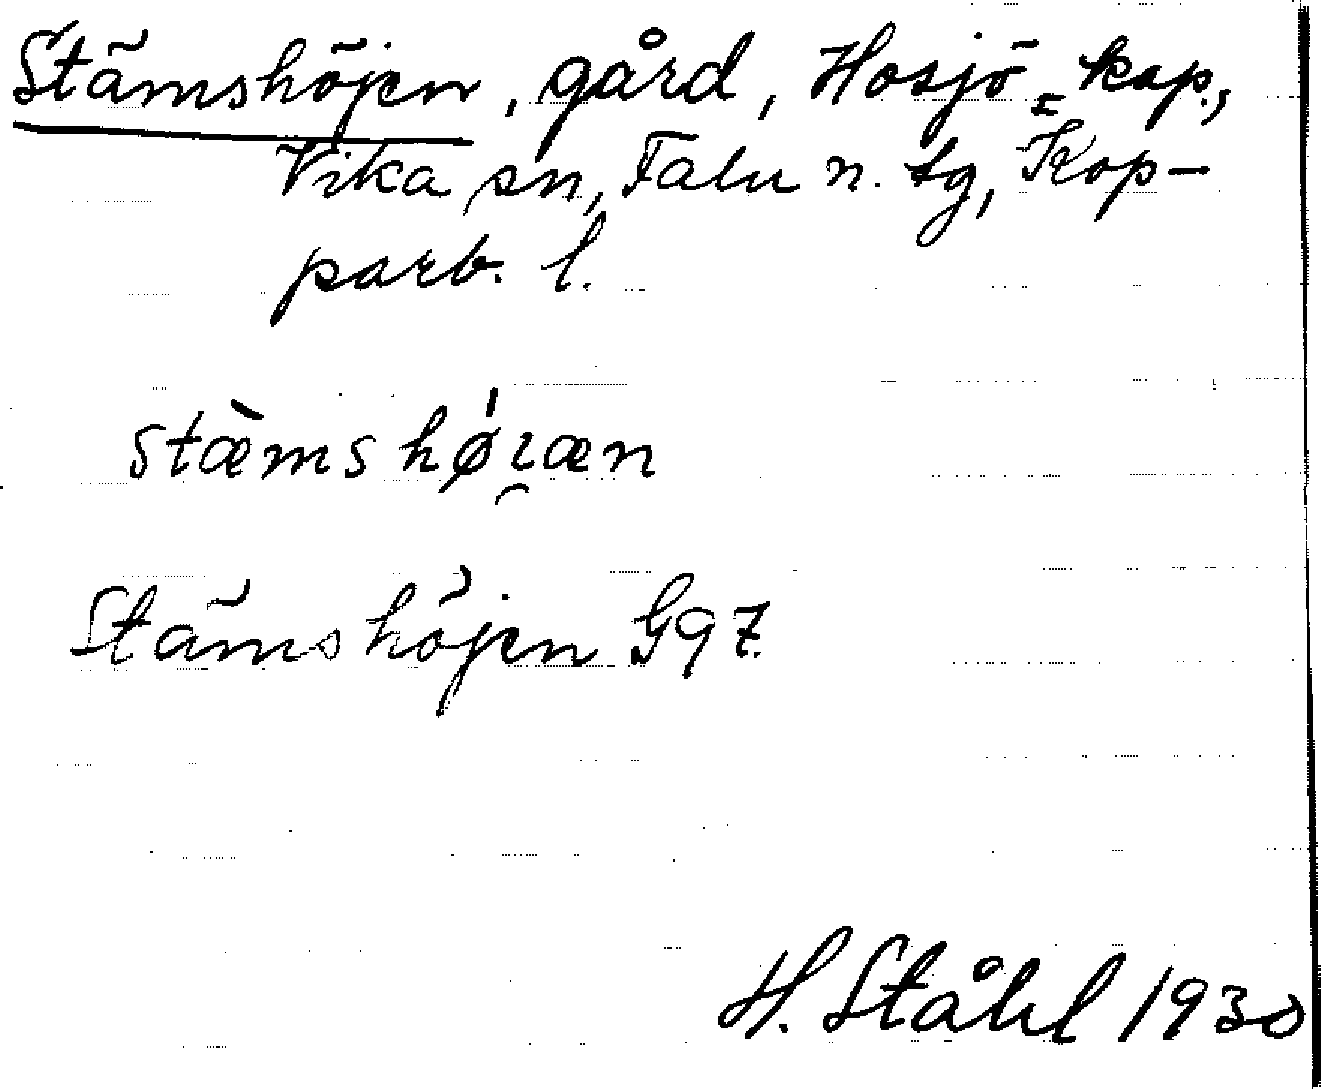 Stämshöjen, gård, Hosjö-kap.,
Vika sn, Falu n. tg, Kop-
parb. l.
stæ̀mshø̍ı̯æn
Stämshöjen G97.
H. Ståhl 1930